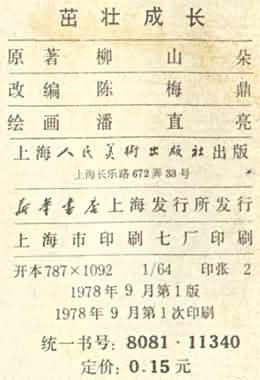 茁壮成长
原著 柳山朵
改编 陈梅鼎
绘画 潘直亮
上海人民美術出版社出版
上海长乐路672弄33号
新华書店上海发行所发行
上海市印刷七厂印刷
开本787×1092 1/64 印张 2
1978年9月第1版
1978年9月第1次印刷
统一书号：8081·11340
定价：0.15元